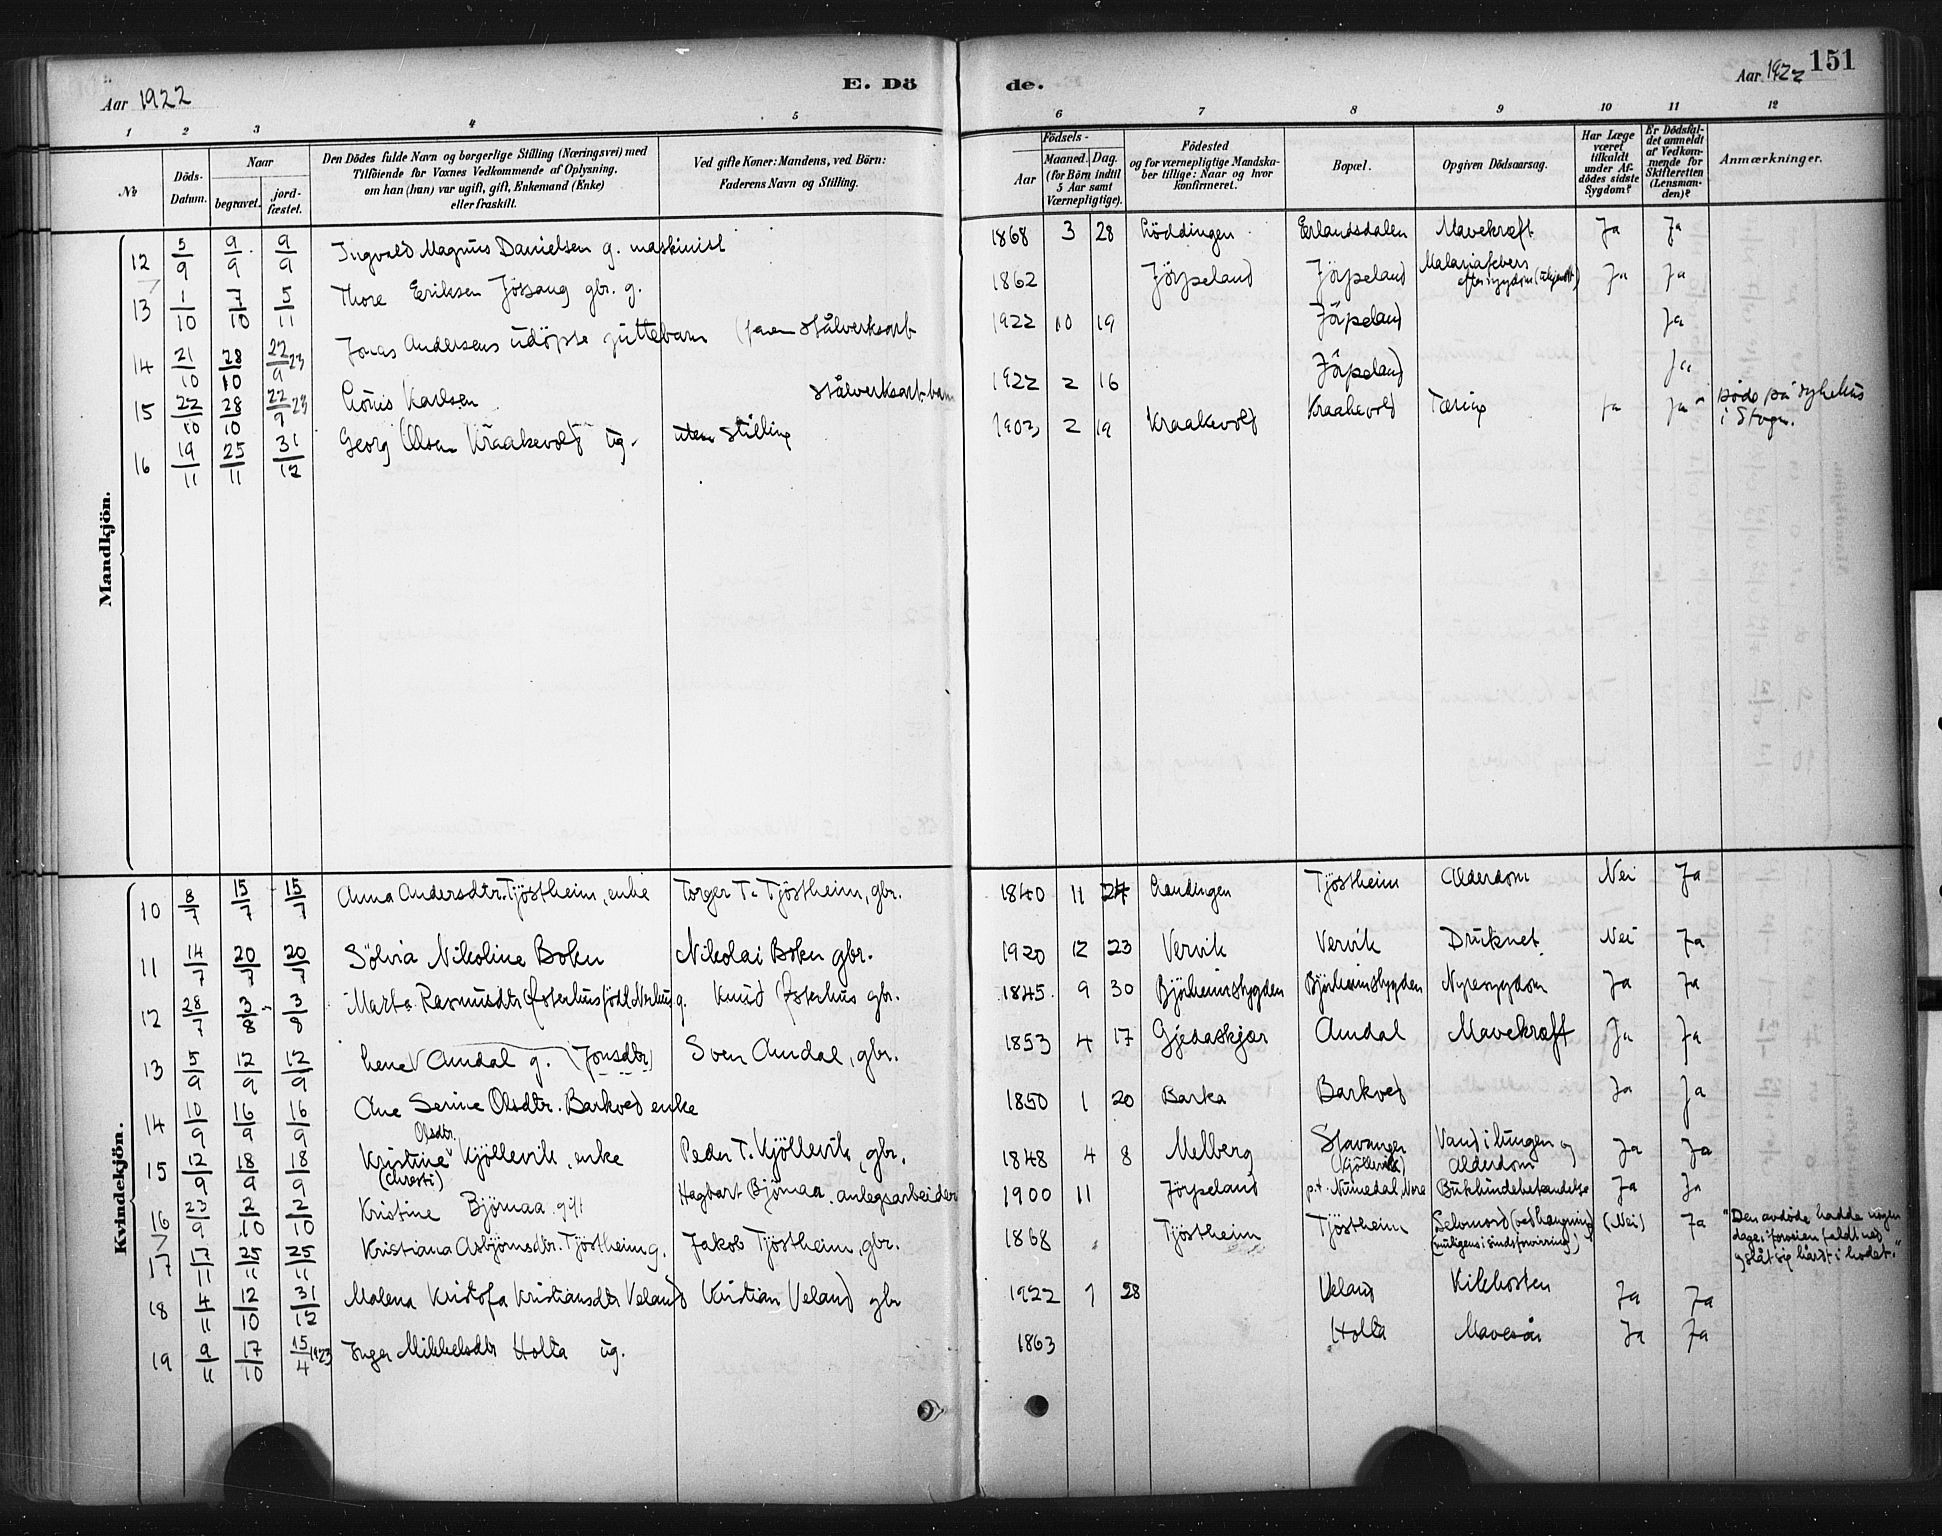 Aar 1922
E. Dö
de.
Aar 1922 151
1 2 3 4 5 6 7 8 9 10 11 12
No
Döds-Datum.
Naar
begravet.
jord-fæstet.
Den Dödes fulde Navn og borgerlige Stilling (Næringsvei) med
Tilföiende for Voxnes Vedkommende af Oplysning,
om han (hun) var ugift, gift, Enkemand (Enke)
eller fraskilt.
Ved gifte Koner: Mandens, ved Börn:
Faderens Navn og Stilling.
Födsels-
Aar
Maaned. Dag.
(for Börn indtil
5 Aar samt
Værnepligtige).
Födested
og for værnepligtige Mandska-
ber tillige: Naar og hvor
konfirmeret.
Bopæl.
Opgiven Dödsaarsag.
Har Læge
været
tilkaldt
under Af-
dödes sidste
Sygdom?
Er Dödsfal-
det anmeldt
af Vedkom-
mende for
Skifteretten
(Lensman-
den)?
Anmærkninger.
Mandkjön.
12 5/9 9/9 9/9 Ingvald Magnus Danielsen g. maskinist 1868 3 28 Löddingen Erlandsdalen Mavekræft Ja Ja
13 1/10 7/10 5/11 Thore Eriksen Jössang gbr. g. 1862 Jörpeland Jörpeland Malariafebers eftersygdom Ja Ja
14 21/10 28/10 22/9 23 Jonas Andersens udöpte guttebarn stålverksarb 1922 10 19 Jörpeland Ja
15 22/10 28/10 22/9 23 Louis Karlsen stålverksarb. barn 1922 2 16 Jörpeland Ja
16 19/11 25/11 31/12 Georg Olsen Kraakevold ug. uten Stilling 1903 2 19 Kraakevold Kraakevold Tæring Ja Ja döde på sykehus
i Stvgr.
Kvindekjön.
10 8/7 15/7 15/7 Anna Andersdtr. Tjöstheim, enke Torger T. Tjöstheim, gbr. 1840 11 24 Tjöstheim Alderdom Nei Ja
11 14/7 20/7 20/7 Sölvia Nikoline Boken Nikolai Boken gbr. 1920 12 23 Vervik Vervik Druknet Nei Ja
12 28/7 3/8 3/8 Marta Rasmusdtr Österhus född Nerhus g. Knud Österhus gbr. 1845 9 30 Björheimsbygden Björheimsbygden Nyresygdom Ja Ja
13 5/9 12/9 12/9 Lene Amdal g. (Jonsdtr) Sven Amdal, gbr. 1853 4 17 Gjedaskjær Amdal Mavekræft Ja Ja
14 10/9 16/9 16/9 Ane Serine Olsdtr. Barkved enke 1850 1 20 Barka Barkved Ja Ja
15 12/9 18/9 18/9 Kristine Olsdtr. Kjöllevik, enke Peder T. Kjöllevik, gbr. 1848 4 8 Melberg Stavanger (Kjöllevik) Vand i lungen og Alderdom Ja Ja
(Christi)
16 23/9 2/10 2/10 Kristine Björnaa gift Hagbart Björnaa. anlegsarbeider 1900 11 Jörpeland p.t. Numedal, Nore Bukhindebetændelse Ja Ja
17 17/11 25/11 25/11 Kristiana Asbjörnsdtr. Tjöstheim g. Jakob Tjöstheim, gbr. 1868 Tjöstheim Tjöstheim Selvmord (ved hængning) (muligens i sindsforvirring) (Nei) Ja "Den avdöde hadde nogen
dage i forveien faldt ned
og slåt sig hårdt i hodet."
18 4/11 12/10 31/12 Malena Kristofa Kristiansdtr Veland Kristian Veland gbr 1922 7 28 Veland Kikhosten Ja Ja
19 9/11 17/10 15/4 1923 Inger Mikkelsdtr Holta ug. 1863 Holta Mavesår Ja Ja